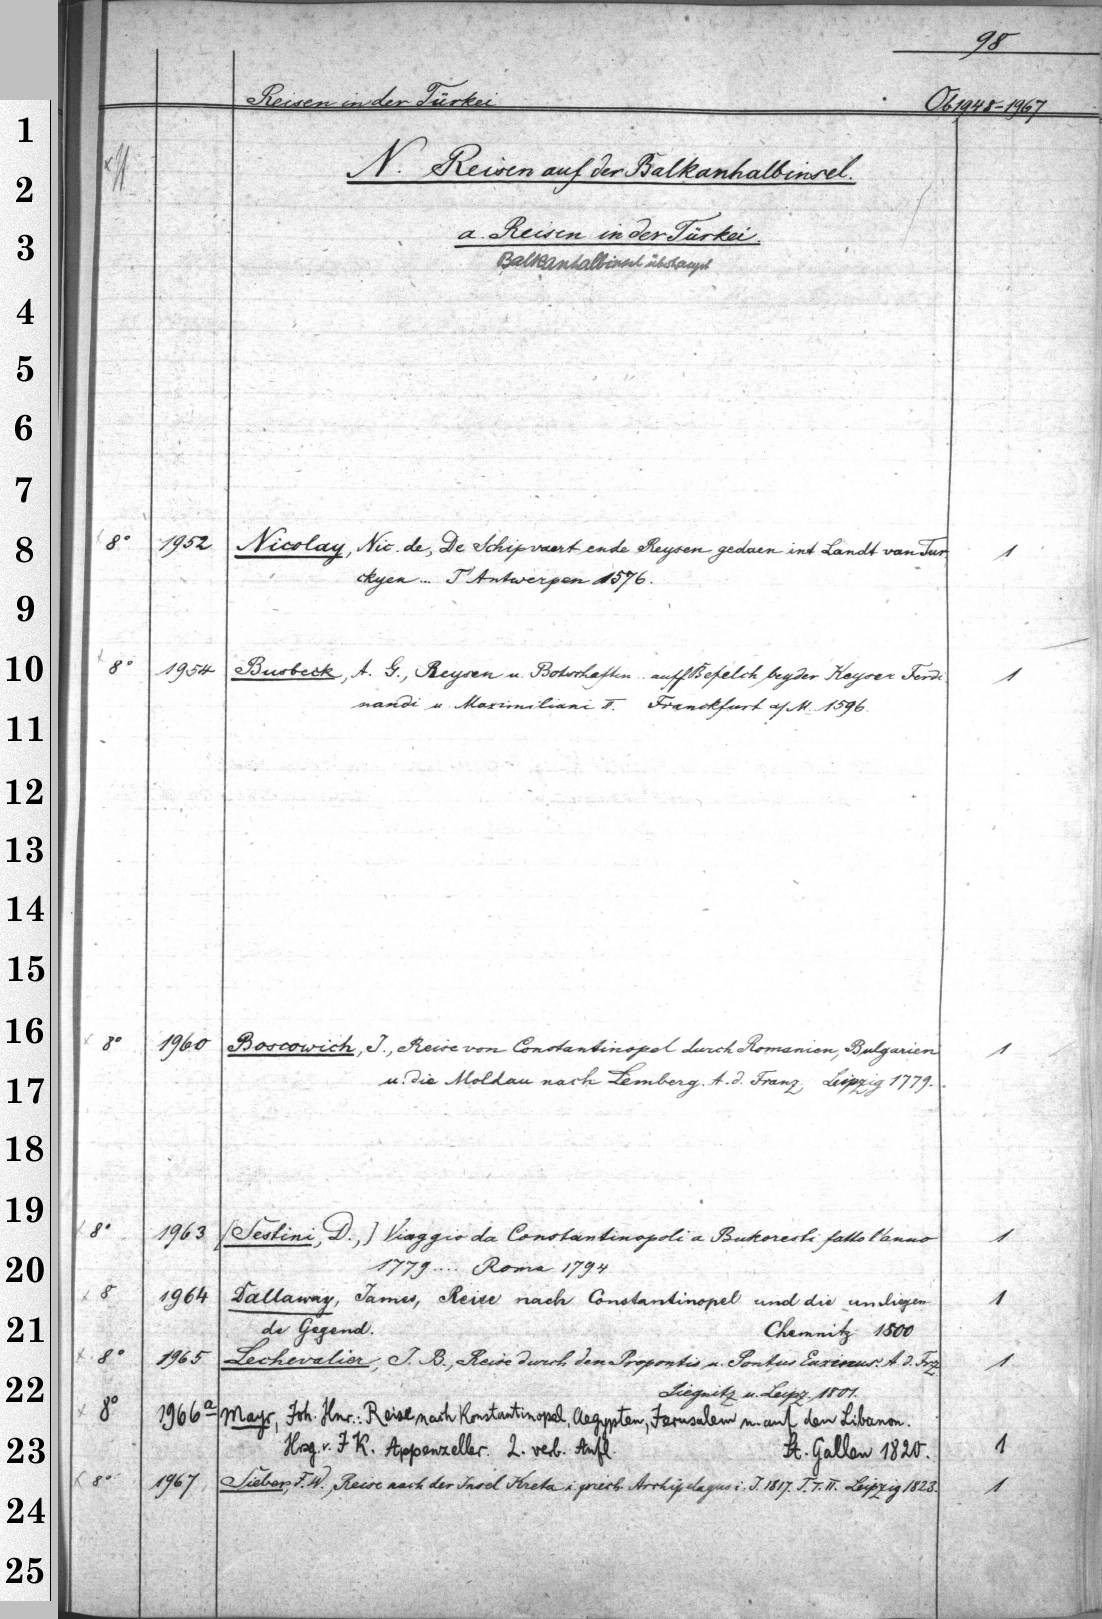 98
Reisen in der Türkei Ob 1948-1967
N. Reisen auf der Balkanhalbinsel.
a. Reisen in der Türkei.
Balkanhalbinsel überhaupt
8° 1952 Nicolay, Nic. de, De Schipvaert ende Reysen gedaen int Landt van Tur 1
ckyen ... T'Antwerpen 1576.
8° 1954 Busbeck, A. G., Reysen u. Botschaften .. auff Befelch beyder Keyser Ferdi 1
nandi u. Maximiliani II. Franckfurt a/M. 1596.
8° 1960 Boscowich, J., Reise von Constantinopel durch Romanien, Bulgarien 1
u. die Moldau nach Lemberg. A. d. Franz. Leipzig 1779.
8° 1963 [Sestini, D.,] Viaggio da Constantinopoli a Bukoresti fatto l'anno 1
1779.... Roma 1794
8 1964 Dallaway, James, Reise nach Constantinopel und die umliegen 1
de Gegend. Chemnitz 1800
8° 1965 Lechevalier, J. B., Reise durch den Propontis u. Pontus Euxinus. A. d. Frz. 1
Liegnitz u. Leipz. 1801.
8° 1966a Mayr, Joh. Hnr.: Reise nach Konstantinopel, Aegypten, Jerusalem u. auf den Libanon.
Hrsg. v. J K. Appenzeller. 2. verb. Aufl. St. Gallen 1820. 1
8° 1967 Sieber, F. W., Reise nach der Insel Kreta i. griech. Archipelagus i. J. 1817. T. I. II. Leipzig 1823. 1
1
2
3
4
5
6
7
8
9
10
11
12
13
14
15
16
17
18
19
20
21
22
23
24
25